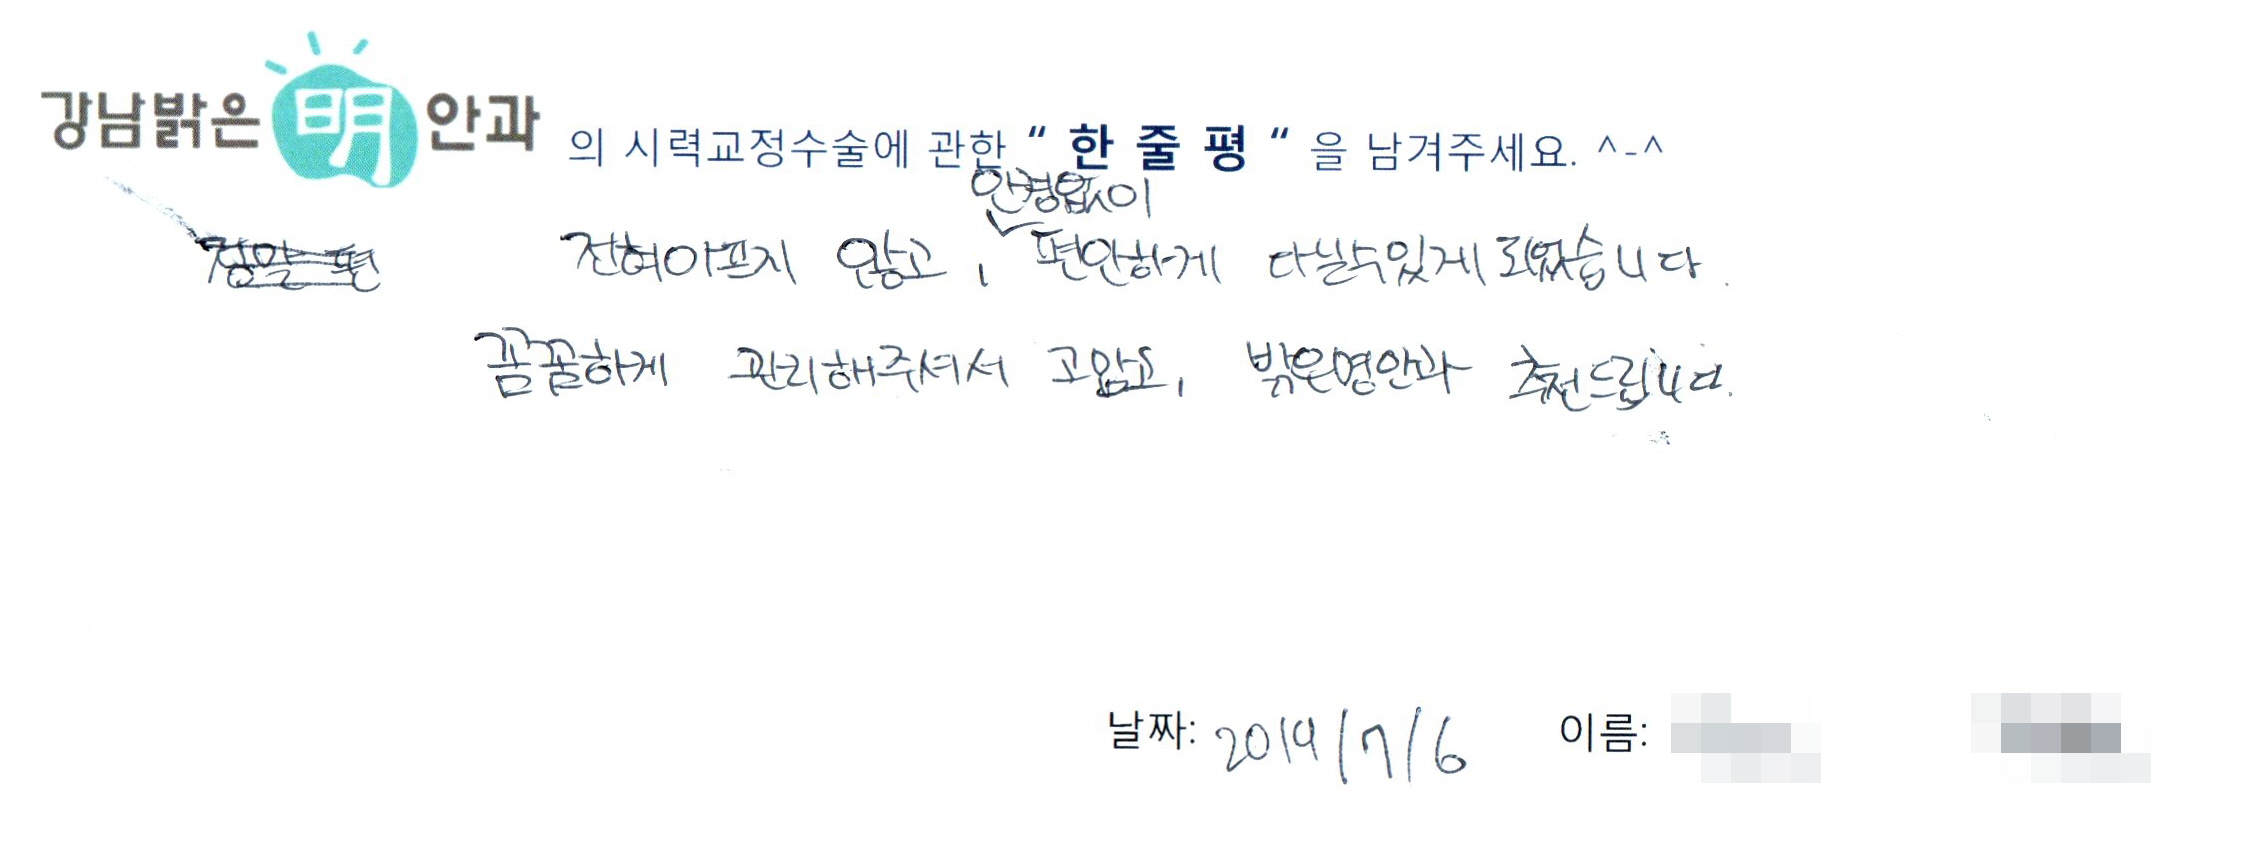 강남밝은明안과 의 시력교정수술에 관한 “ 한 줄 평 “ 을 남겨주세요. ^-^
안경없이
정말 편 전혀아프지 않고, 편안하게 다닐수있게 되었습니다.
꼼꼼하게 관리해주셔서 고맙고, 밝은명안과 추천드립니다.
날짜: 2019/7/6 이름: